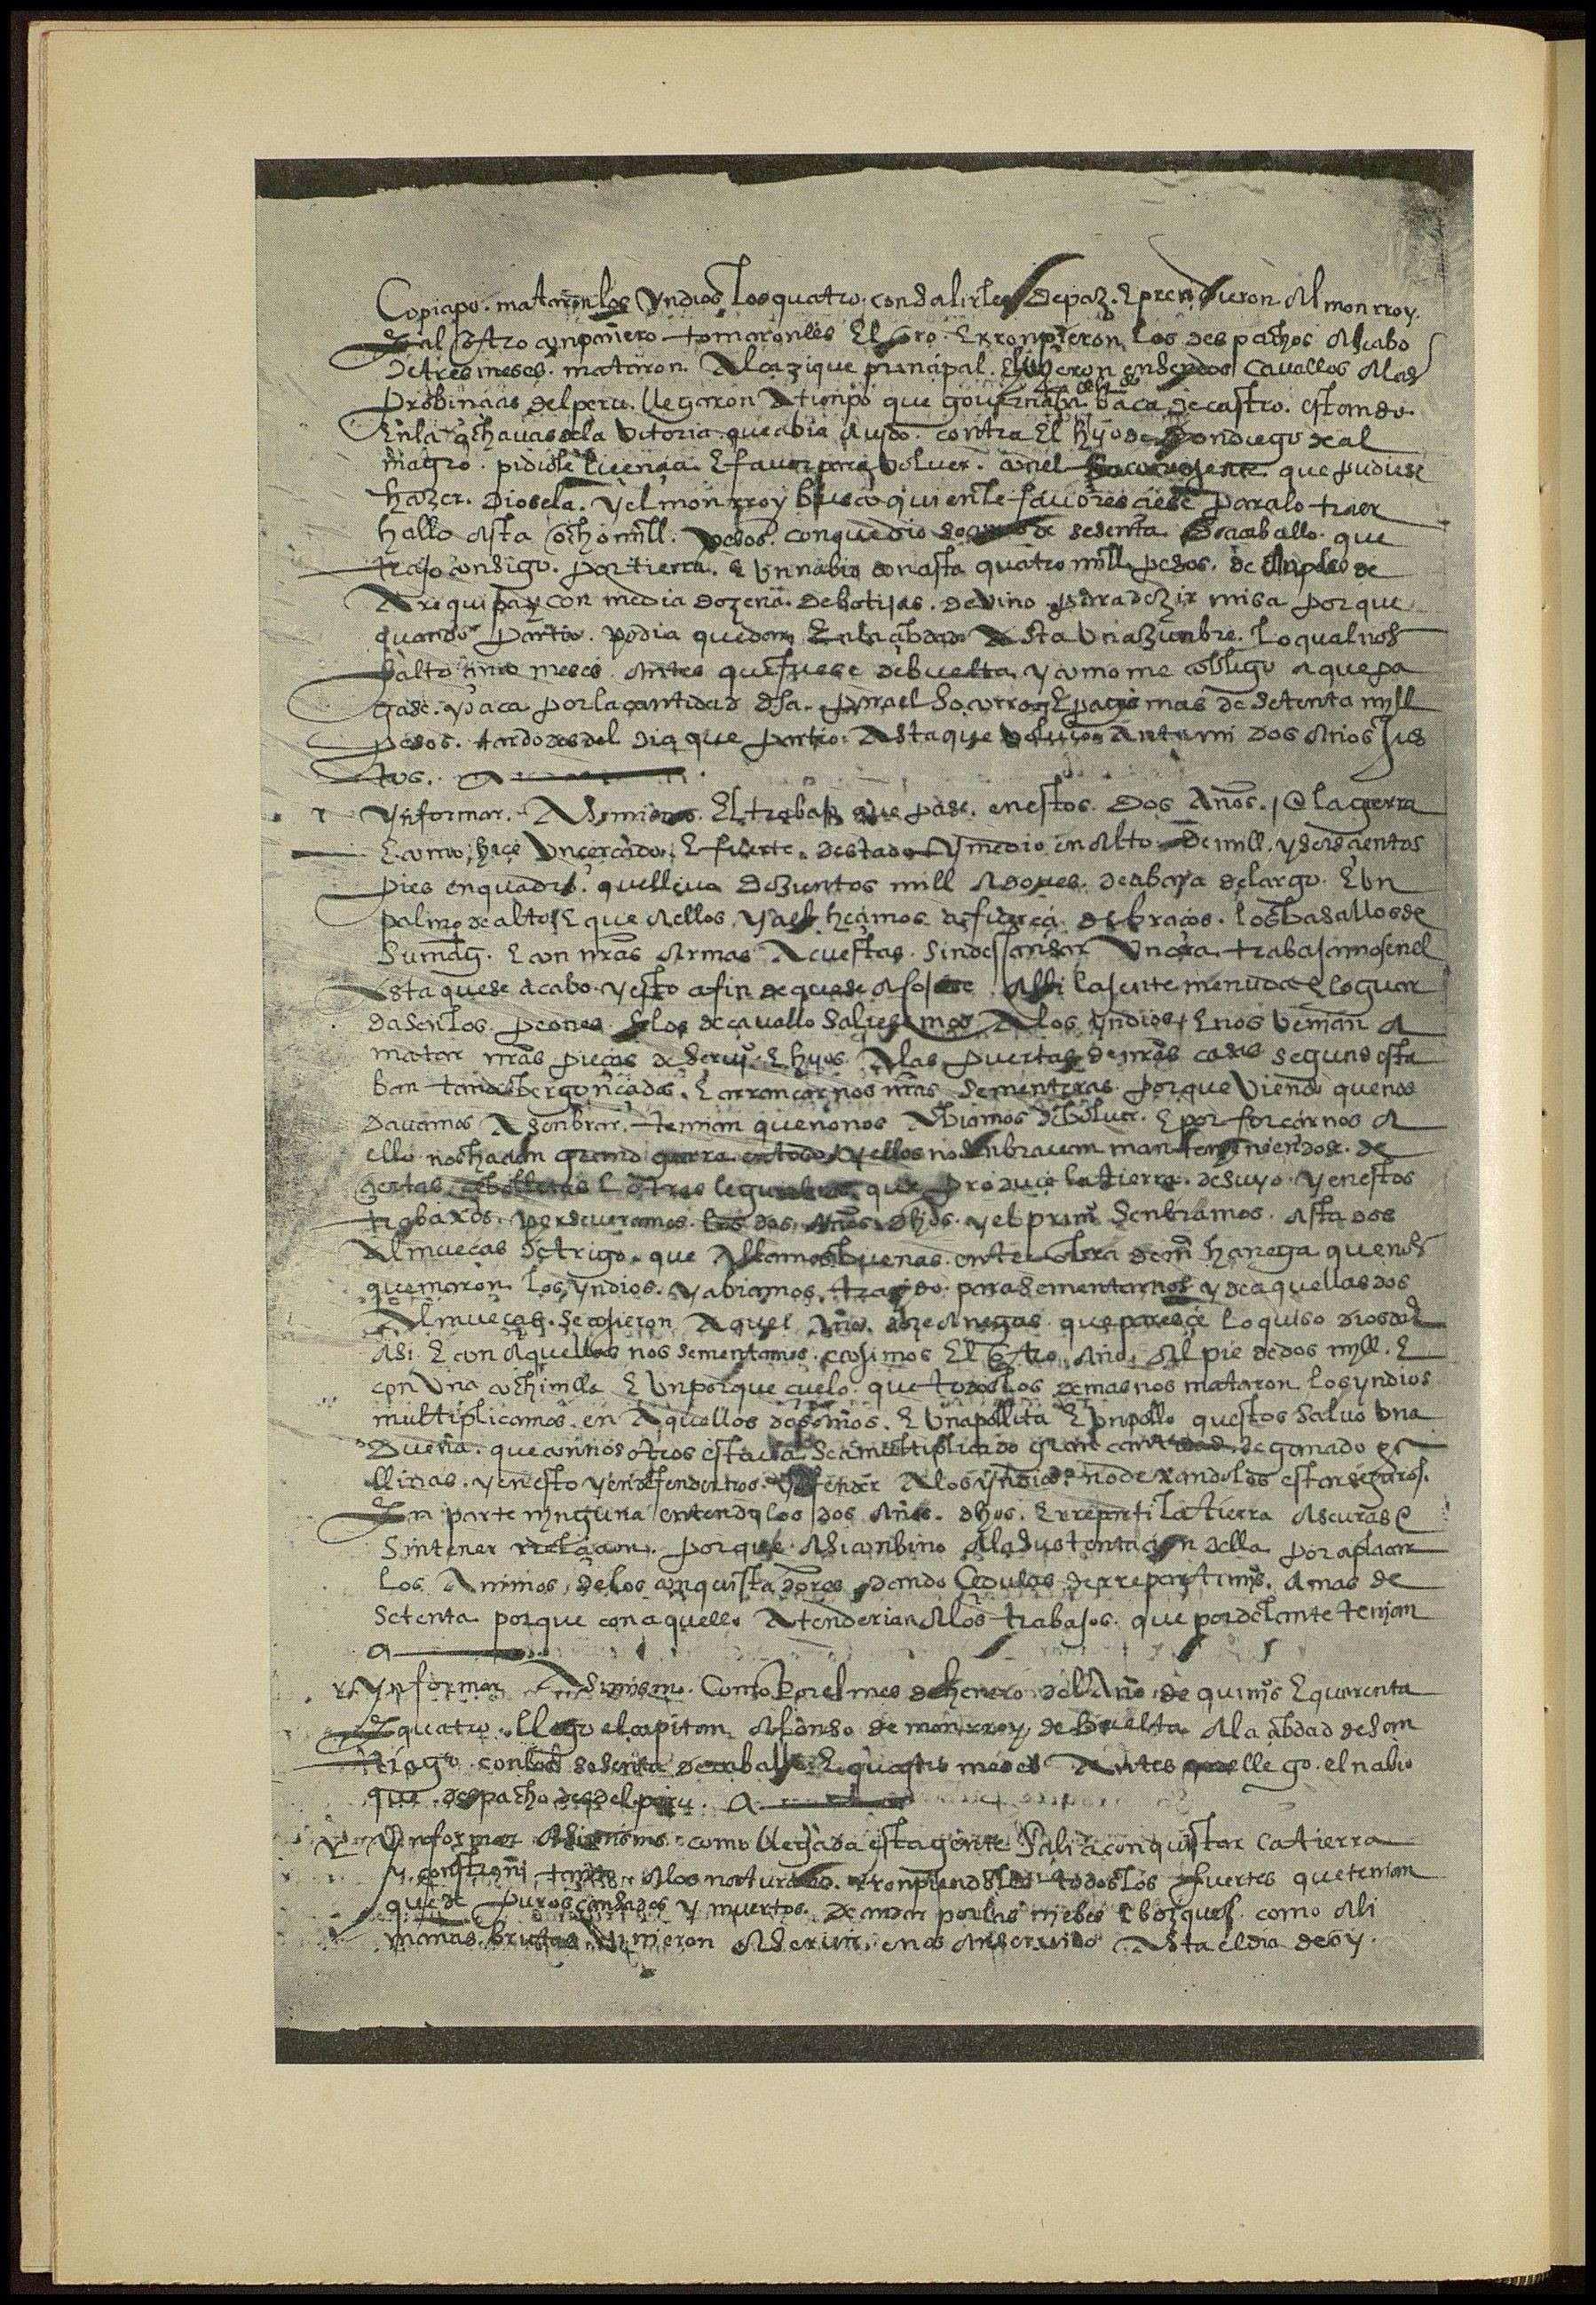 Copiapo. mataron los yndios los quatro. con salirles de paz. E prendieron Al monrroy.
E al otro conpañero tomaronles El oro. E rronpieron los despachos Al cabo
de tres meses. mataron. Al cazique prinçipal. E huyeron en sendos cavallos A las
probinçias del peru. llegaron A tienpo que gouernaba baca de castro. estando
En la qchauas de la vitoria. que abia Auido. contra El hijo de don diego de al
magro. pidiole liçençia. E fauor para voluer. con el que pudiese
hazer. diosela. y el monrroy busco quien le fauoresçiese para lo traer
hallo Asta ocho mill. pesos. con que dio de sesenta. de caballo. que
trajo consigo. por tierra. E vn nabio con asta quatro mill pesos. de Enpleo de
Arequipa y con media dozena. de botijas. de vino para dezir misa porque
quando partio. podia quedar En la çibdad Asta vna azunbre. lo qual nos
falto meses Antes que fuese de buelta. y como me obligo a que pa
gase. yo aca por la cantidad dsa. para el socorro E pague mas de setenta mjll
pesos. tardo desdel dia que partio. Asta que voluio Ante mi dos Años jus
tos.
ynformar. Asimismo. El trabajo que pase. en estos. dos Años. la gerra
E como hiçe vn çercado. E fuerte. destado y medio en Alto. de mill. y seisçientos
pies en quadro. que lleuo dozientos mill Adoues. de a bara de largo. E vn
palmo de alto E que A ellos y a el heçimos a fuerça. de braços. los basallos de
Su mag. E con nras Armas Acuestas. sin descansar vn ora. trabajamos en el
Asta que se Acabo. y esto a fin de que se Alli la jente menuda E lo guar
dasen los peones. E los de cauallo saliesemos A los yndios. E nos venian A
matar nras pieças de seruj. E hijos A las puertas de nras casas segund esta
ban tan desbergonçados. E arrancarnos nras sementeras. porque viendo que nos
dauamos A senbrar. tenian que no nos Abiamos de boluer. E por forçarnos A
ello nos hazian grand guerra en todo y ellos no senbrauan mantenjendose. de
çiertas çebolletas E otras legunbres que produçe la tierra. de suyo. y en estos
trabaxos. perseueramos los dos Años dhos. y el primº senbramos Asta dos
Almueças de trigo. que Allamos buenas. entre otra de mª hanega que nos
quemaron los yndios. y abiamos. traydo para sementarnos y de aquellas dos
Almueças. se cojieron Aquel Año. doze Anegas que pareçe lo quiso dios dar
Asi. E con Aquellas nos sementamos. cojimos El otro Año. Al pie de dos mjll. E
con vna cochinilla E vn porqueçuelo. que todos los demas nos mataron los yndios
multiplicamos. en Aquellos dos Años. E vna pollita E vn pollo questos saluo vna
Dueña. que con nosotros estaua. se a multiplicado gran cantidad de ganado E ga
llinas. y en esto y en defendernos. y ofender A los yndios. no dexandolos estar seguros.
En parte njnguna entendi los dos Años. dhos. E rreparti la tierra A escuras E
sin tener rrelaçion. porque Asi conbino A la sustentaçion della por aplacar
los Animos. de los conquistadores dando çedulas de rrepartimjº. A mas de
setenta porque con aquello Atenderian A los trabajos. que por delante tenjan
ynformar Asimismo. Como por el mes de henero del Año de quinjºs E quarenta
E quatro. llego el capitan Alonso de monrroy de buelta A la çibdad de san
tiago. con los sesenta de caballo. E quatro meses Antes llego. el nabio
que despacho desdel peru.
ynformar Asimismo. como llegada esta gente. sali a conquistar la tierra
y constreñi tanto A los naturales. rronpiendoles todos los fuertes que tenian
que de puros cansados y muertos. de andar por las njebes E bosques. como Ali
manas brutas. vinieron A seruir. e nos An seruido Asta el dia de oy.